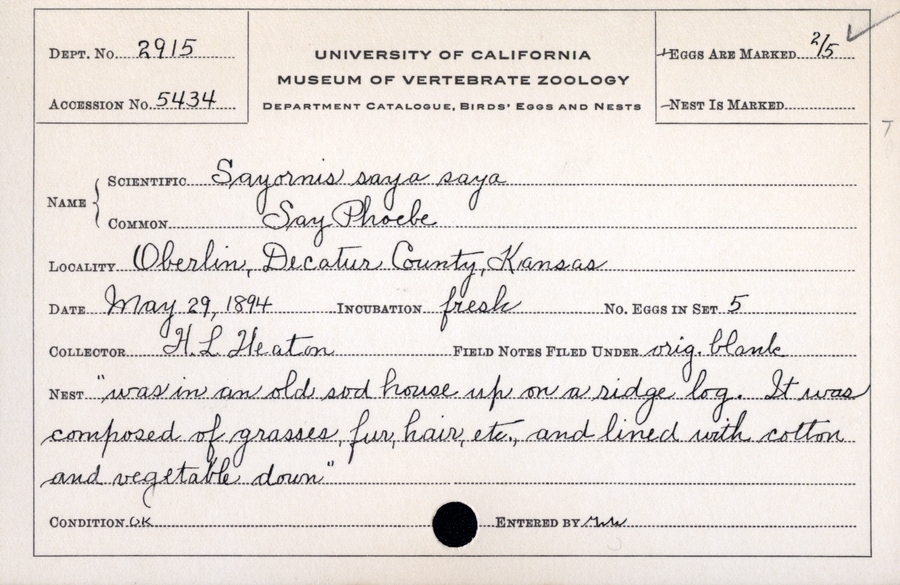 DEPT. No. 2915
ACCESSION No. 5434
UNIVERSITY OF CALIFORNIA
MUSEUM OF VERTEBRATE ZOOLOGY
DEPARTMENT CATALOGUE, BIRDS' EGGS AND NESTS
EGGS ARE MARKED 2/5
NEST IS MARKED
NAME
SCIENTIFIC Sayornis saya saya
COMMON Say Phoebe
LOCALITY Oberlin, Decatur County, Kansas
DATE May 29, 1894 INCUBATION fresh No. EGGS IN SET 5
COLLECTOR H. L. Heaton FIELD NOTES FILED UNDER orig. blank
NEST "was in an old sod house up on a ridge log. It was
composed of grasses, fur, hair, etc., and lined with cotton
and vegetable down"
CONDITION OK ENTERED BY